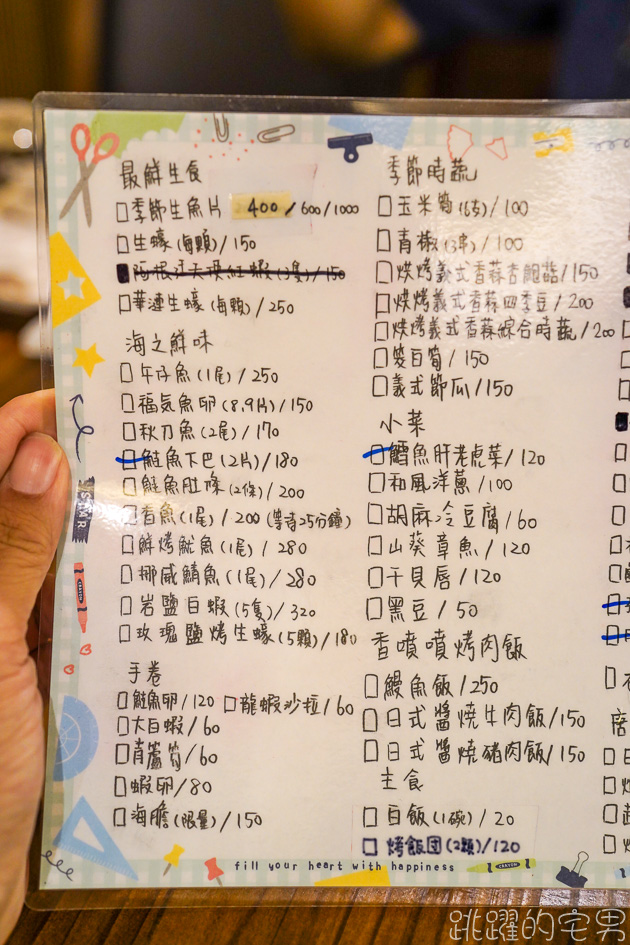 最鮮生食
季節生魚片 400/600/1000
生蠔(每顆)/150
阿根廷天使紅蝦(3隻)/150
華連生蠔(每顆)/250
海之鮮味
午仔魚(1尾)/250
福氣魚卵(8.9片)/150
秋刀魚(2尾)/170
鮭魚下巴(2片)/180
鮭魚肚條(2條)/200
香魚(1尾)/200(等待25分鐘)
鮮烤魷魚(1尾)/280
挪威鯖魚(1尾)/280
岩鹽白蝦(5隻)/320
玫瑰鹽烤生蠔(5顆)/180
手卷
鮭魚卵/120 龍蝦沙拉/60
大白蝦/60
青蘆筍/60
蝦卵/80
海膽(限量)/150
季節時蔬
玉米筍(6支)/100
青椒(3串)/100
烘烤義式香蒜杏鮑菇/150
烘烤義式香蒜四季豆/200
烘烤義式香蒜綜合時蔬/200
筊白筍/150
義式節瓜/150
小菜
鱈魚肝老虎菜/120
和風洋蔥/100
胡麻冷豆腐/60
山葵章魚/120
干貝唇/120
黑豆/50
香噴噴烤肉飯
鰻魚飯/250
日式醬燒牛肉飯/150
日式醬燒豬肉飯/150
主食
白飯(1碗)/20
烤飯団(2顆)/120
STAR
CRAYON
fill your heart with happiness
CRAYON
跳躍的宅男